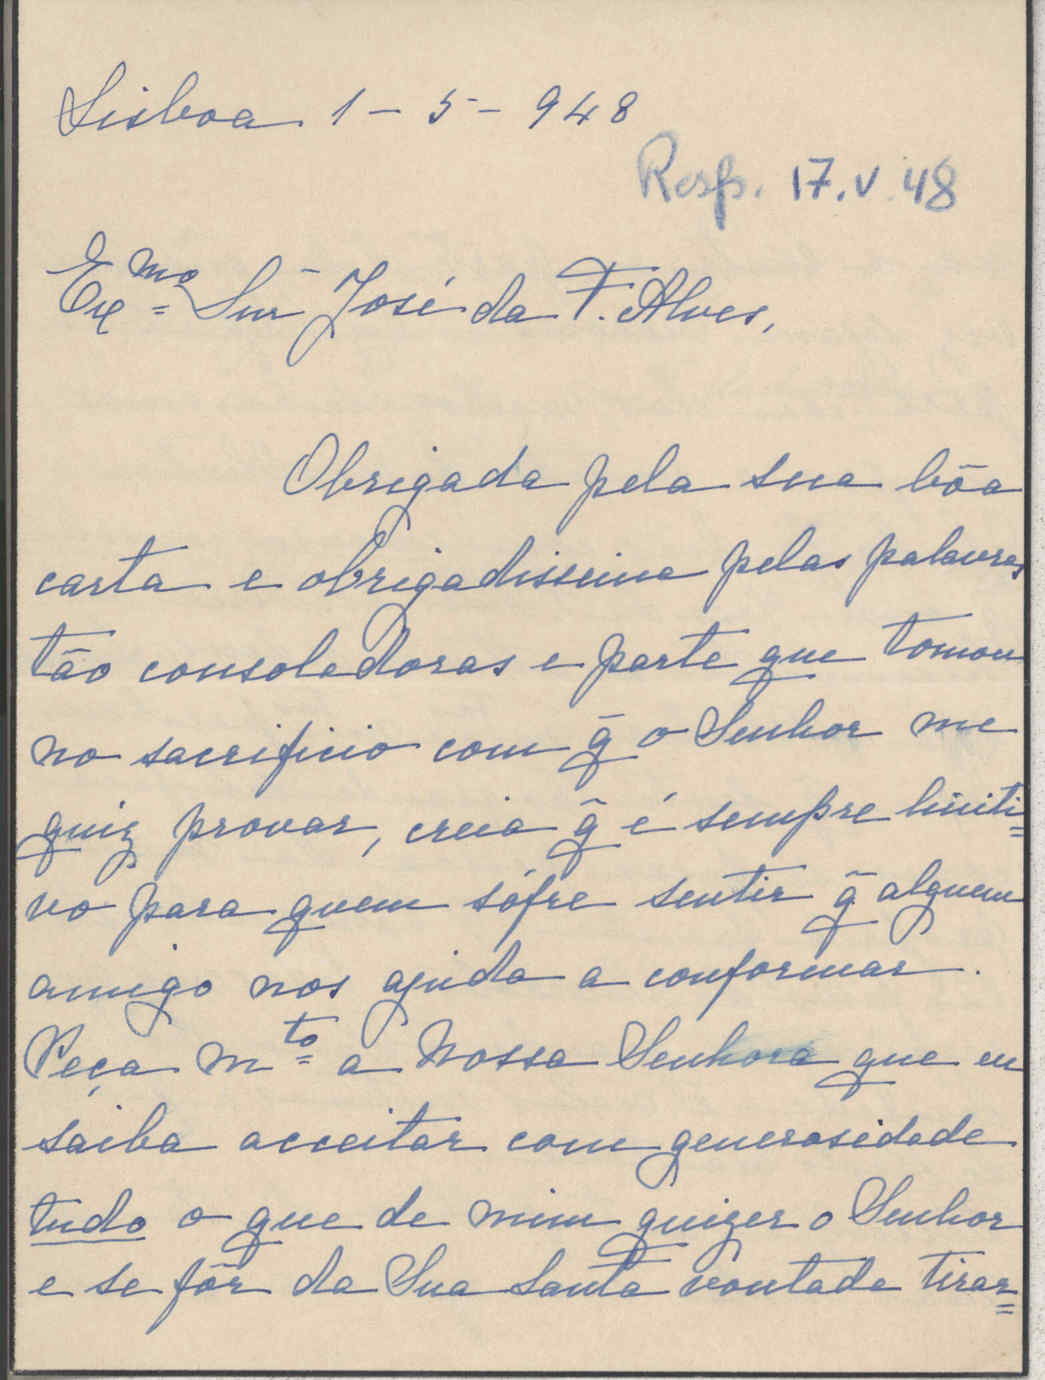 Lisboa 1 - 5 - 948
Resp. 17.V.48
Exmo Snr José da F. Alves,
Obrigada pela sua bôa
carta e obrigadissima pelas palavras
tão consoladoras e parte que tomou
no sacrificio com q̃ o Senhor me
quiz provar, creia q̃ é sempre liniti=
vo para quem sófre sentir q̃ alguem
amigo nos ajuda a conformar.
Peça mto a Nossa Senhora que eu
saiba acceitar com generosidade
tudo o que de mim quizer o Senhor
e se fôr da Sua Santa vontade tirar=